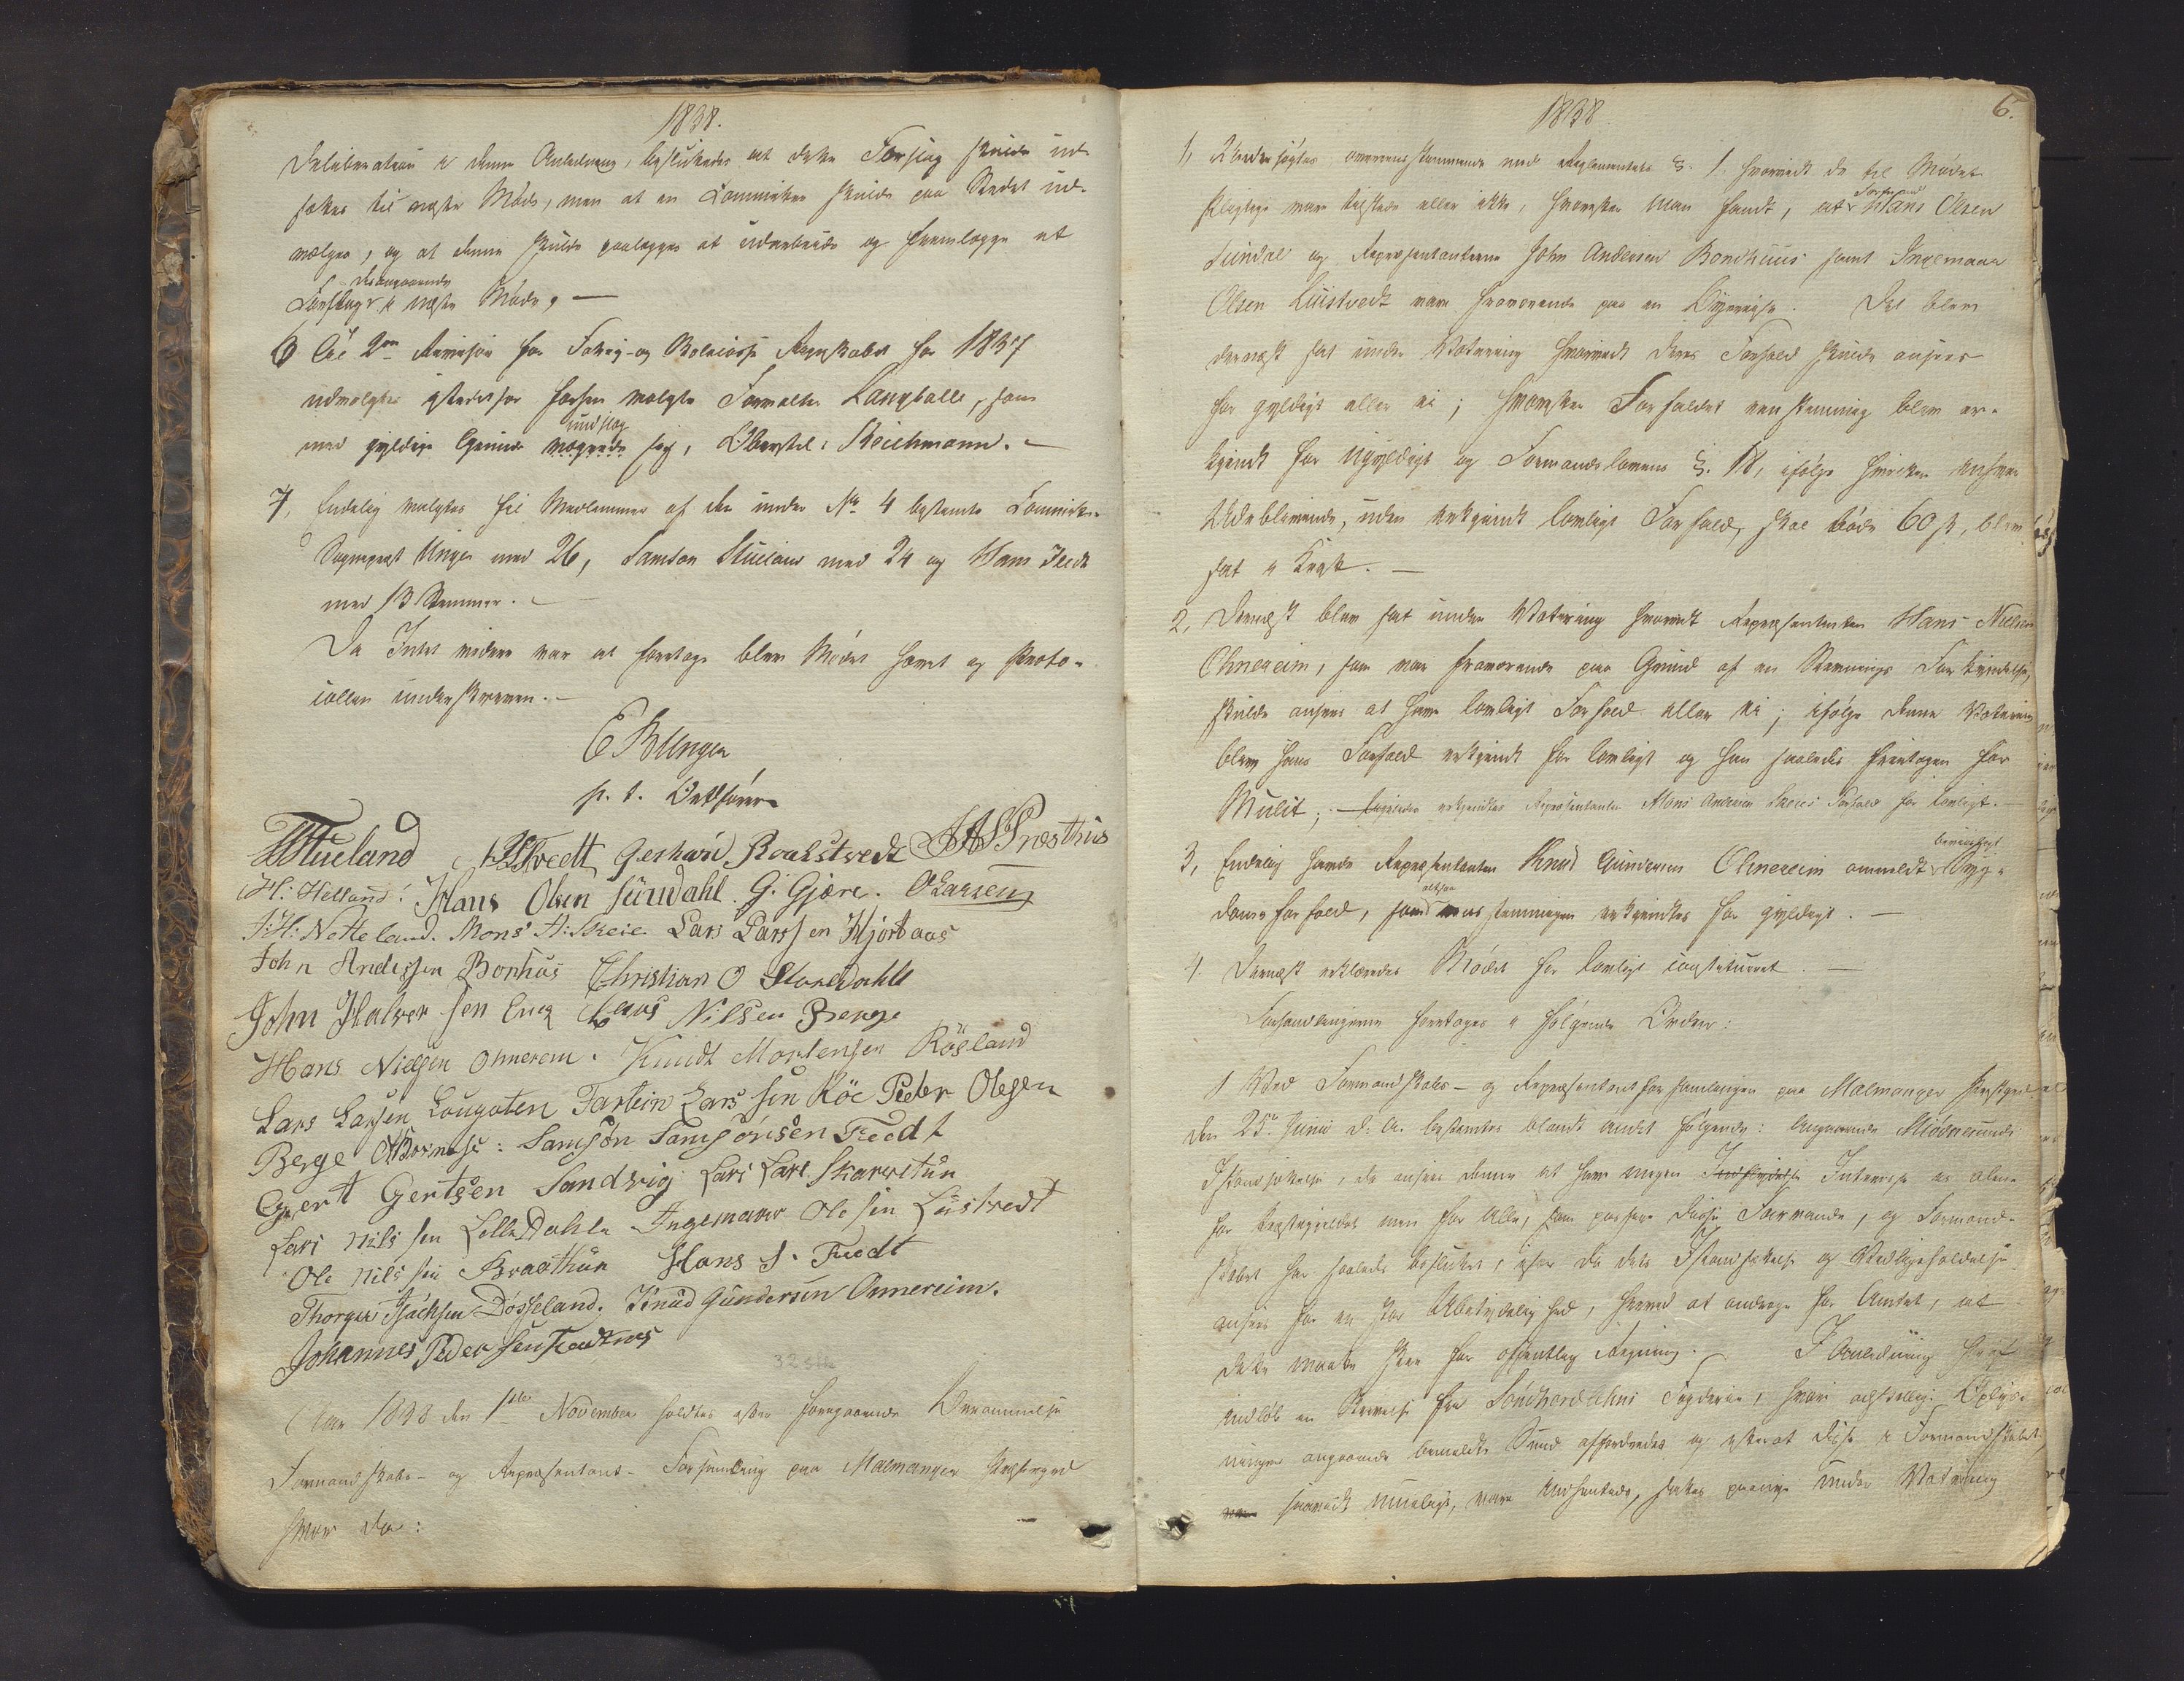 1838.
Deliberation i denne Anledning, besluttedes at dette Forslag skulde ud-
sættes til næste Møde, men at en Committee skulde paa Stedet ud-
vælges, og at denne skulde paalægges at udarbeide og fremlægge et
desangaaende
Forslag i næste Møde. —
6 Til 2den Revision for Fattig- og Skolecasse Regnskabet for 1837
udvalgtes istedetfor forhen valgte Forvalter Langballe, som
undslog
med gyldige Grunde vægrede sig, Oberstl: Reichmann. —
7, Endelig valgtes til Medlemmer af den under No 4 bestemte Committee
Sognepræst Unger med 26, Samson Stueland med 24 og Hans Tvedt
med 13 Stemmer. —
Da Intet videre var at foretage blev Mødet hævet og Proto-
collen underskreven. —
E B Unger
p. t. Ordfører
Stueland Tvedt Gerhard Roaldstvedt Præsthus
H: Helland: Hans Olsen Sundahl. G. Gjære. O Larsen
J: H: Netteland. Mons A: Skeie Lars Larssen Hjortaas
John Andersen Bonhus Christian O Storedahle
John Halversen Eng Claus Nilsen Berge
Hans Nielsen Omerem. Knudt Mortensen Røsland
Lars Larsen Lougoten Tarbein Larssen Röe Peder Olesen
Berge Samsøn Samsønsen Tvedt
Egert Gertsen Sandvig Lars Lars: Skarvetun
Lars Nilssen LilleDahle Ingemaar Olesen Lustvedt
Ole Nilssen Braathun Hans S. Tvedt
Thorgier Isachsen Døsseland. Knud Gundersen Omereim.
Johannes Pedersen
32 stk
Aar 1838 den 1ste November holdtes efter foregaaende Berammelse
Formandskabs- og Repræsentant-Forsamling paa Malmanger Præstegaard
hvor da:
1838
6.
1, Undersøgtes overensstemmende med Reglementets §. 1 hvorvidt de til Mødet
Formand
pligtige vare tilstede eller ikke, hvorefter man fandt, at Hans Olsen
Sundal og Repræsentanterne John Andersen Bondhuus samt Ingemaar
Olsen Luistvedt vare fraværende paa en Byereise. Det blev
dernæst sat under Votering hvorvidt deres Forfald skulde ansees
for gyldigt eller ei; hvorefter Forfaldet ved Stemning blev er-
kjendt for ugyldigt og Formandslovens §. 18, ifølge hvilken enhver
Udeblivende, uden erkjendt lovligt Forfald, skal bøde 60 ß, blev
sat i Kraft. —
2, Dernæst blev sat under Votering hvorvidt Repræsentanten Hans Nielsen
Omereim, som var fraværende paa Grund af en Stevnings Forkyndelse,
skulde ansees at have lovligt Forfald eller ei; ifølge denne Votering
blev hans Forfald erkjendt for lovligt og han saaledes fritagen for
Mulct; — ligeledes erkjendtes Repræsentanten Mons Andersen Skeies Forfald for lovligt.
bevidnet
3, Endelig havde Repræsentanten Knud Gundersen Omereim anmeldt Syg-
doms forfald, som ved Stemningen erkjendtes for gyldigt. —
4. Dernæst erklæredes Mødet for lovligt constitueret. —
Forhandlingerne foretoges i følgende Orden:
1 Ved Formandskabs- og Repræsentantforsamlingen paa Malmanger Præstegaard
den 25de Juni d. A. bestemtes blandt andet følgende: Angaaende Mødresunds
Istandsættelse, da ansees denne at have megen Indflydelse Interesse ei alene
for Præstegjeldet men for Alle, som passere dette Farvand, og Formand-
skabet har saaledes besluttet, efter da dets Istandsættelse og Vedligeholdelse
ansees for en stor Ubetydelighed, herved at andrage for Amtet, at
dette maatte skee for offentlig Regning. — I Anledning heraf
indløb en Skrivelse fra Søndhordlehns Fogderie, hvori adskillige Oplys-
ninger angaaende bemeldte Sund affordredes og efterat disse i Formandskabet
saavidt mueligt, vare indhentede, sattes paany under Votering